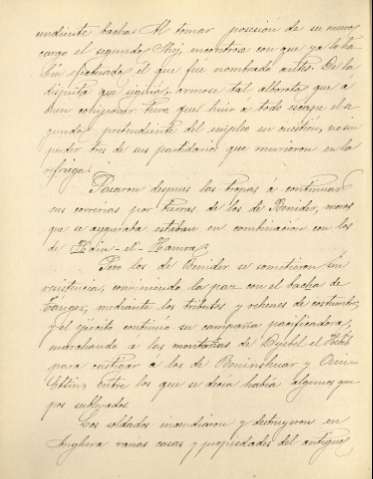 undiente bacha. Al tomar posesión de su nuevo
cargo el segundo Akij, encontrose con que ya lo ha-
bia efectuado el que fué nombrado antes. De la
disputa que siguió, armose tal alboroto que a
tuvo que huir a todo escape el se-
gundo pretendiente del empleo en cuestión, no sin
perder tres de sus partidarios que murieron en la
refriega.
Pasaron despues las tropas á continuar
sus correrias por tierras de los de Benider, moros
que se aseguraba estaban en combinación con los
de
Pero los de Benider se sometieron sin
resistencia, conviniendo la paz con el bacha de
Tánger, mediante los tributos y rehenes de costumbre,
y el ejército continuó su campaña pacificadora,
marchando á las montañas de Dyebel el Hebib
para castigar á los de y
entre los que se decía había algunos gru-
pos sublevados.
Los soldados incendiaron y destruyeron en
Anghera varias casas y propiedades del antiguo